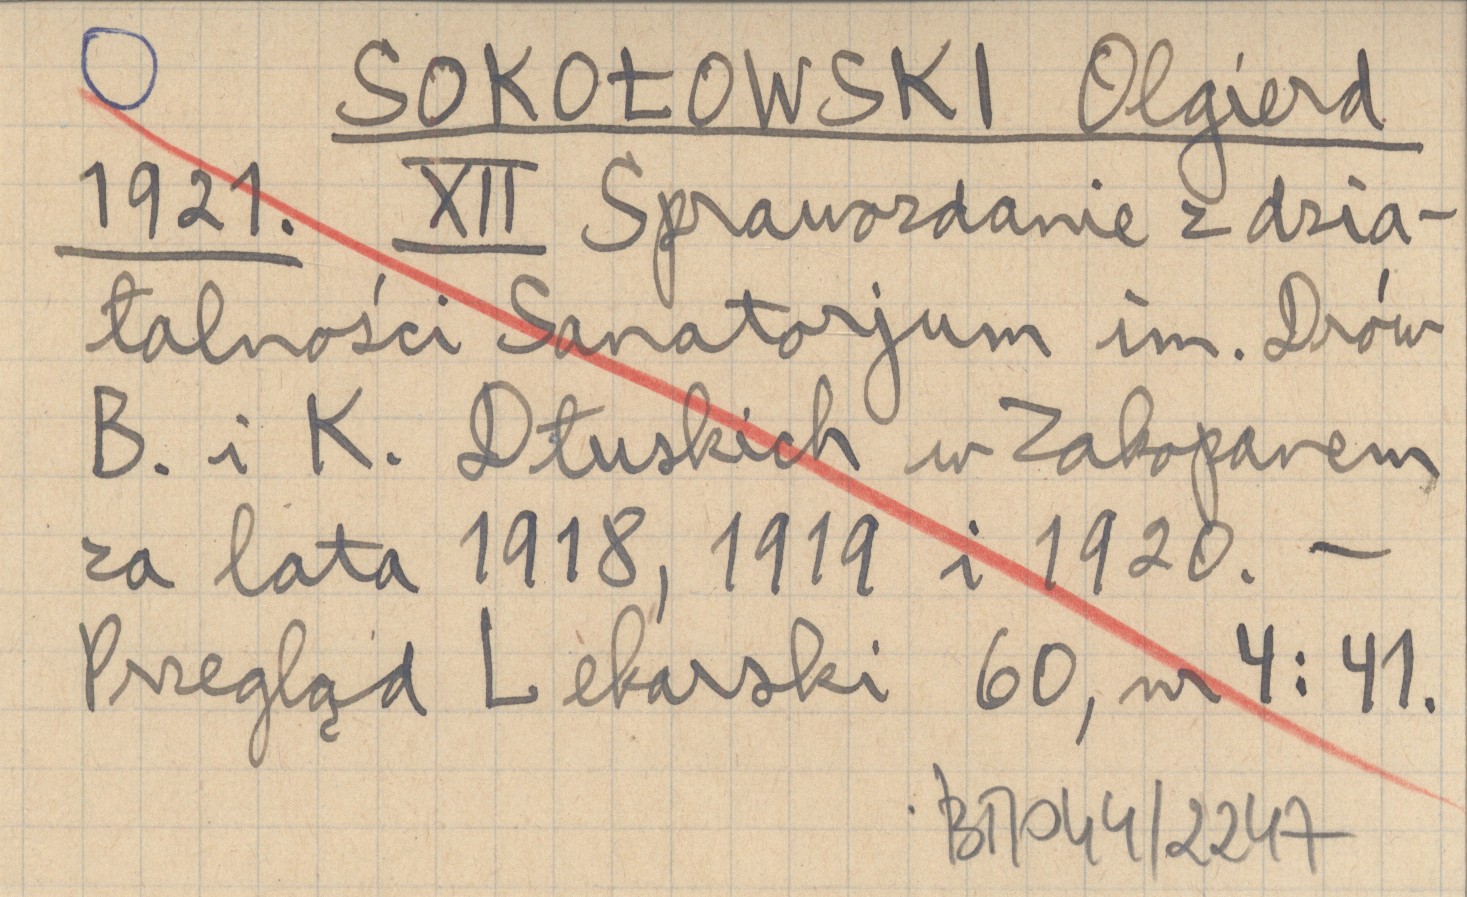 SOKOŁOWSKI Olgierd
1921. XII Sprawozdanie z dzia-
łalności Sanatorjum im. Drów
B. i K. Dłuskich w Zakopanem
za lata 1918, 1919 i 1920. —
Przegląd Lekarski 60, nr 4: 41.